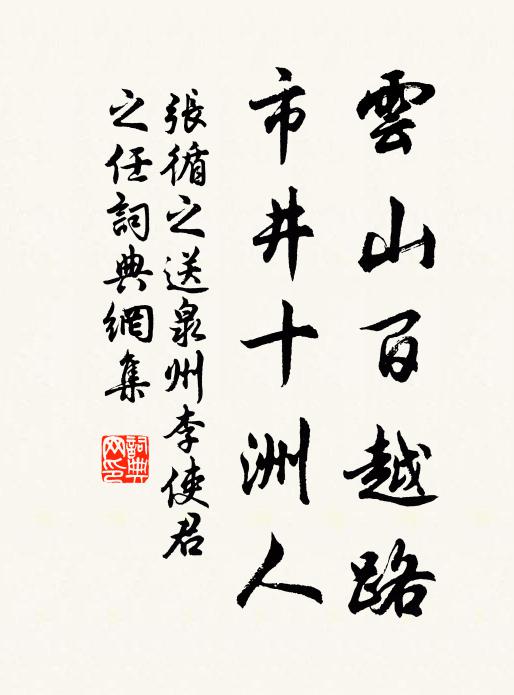 雲山百越路
市井十洲人
張循之送泉州李使君
之任詞典網集
詞典
网印